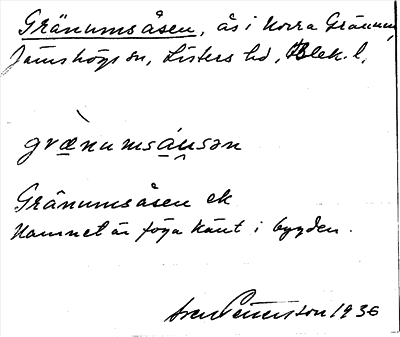 Gränumsåsen, ås i Norra Gränum,
Jämshögs sn, Listers hd, Blek. l,
grænumsåsən
Gränumsåsen ek
Namnet är föga känt i bygden.
Sven Petersson 1936